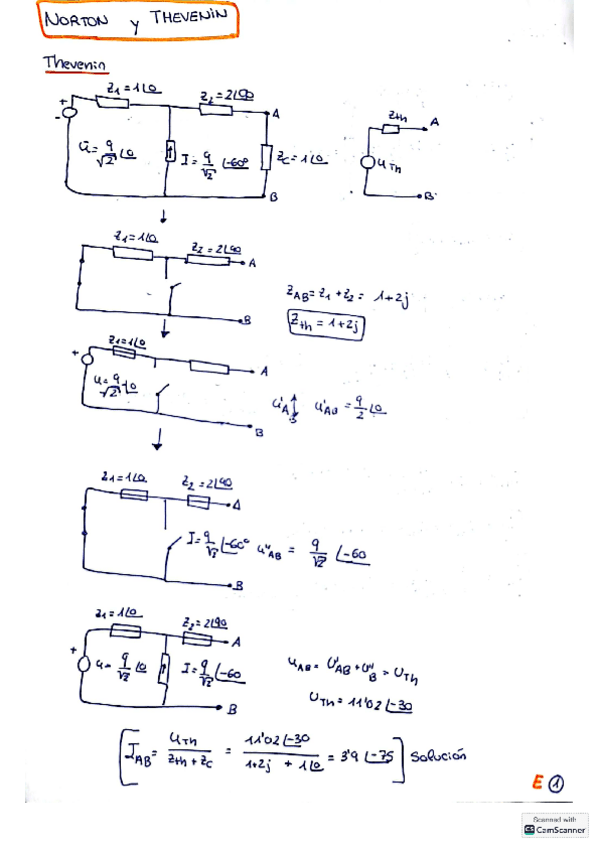 NORTON y THEVENIN
Thevenin
Z1 = 1∠0
Z2 = 2∠90
A
Zth
A
+
-
U = 9/√2 ∠0
I = 9/√2 ∠-60º
Zc = 1∠0
UTh
B
B
Z1 = 1∠0
Z2 = 2∠90
A
ZAB = Z1 + Z2 = 1+2j
Zth = 1+2j
B
Z1 = 1∠0
+
A
U = 9/√2 ∠0
U'AB
U'AB = 9/2 ∠0
B
Z1 = 1∠0
Z2 = 2∠90
A
I = 9/√2 ∠-60º
U''AB = 9/√2 ∠-60
B
Z1 = 1∠0
Z2 = 2∠90
A
+
U = 9/√2 ∠0
I = 9/√2 ∠-60
UAB = U'AB + U''B = UTh
UTh = 11'02 ∠-30
B
[IAB = UTh/(Zth + Zc) = 11'02∠-30/(1+2j + 1∠0) = 3'9 ∠-75] Solución
E 1
Scanned with
CS CamScanner